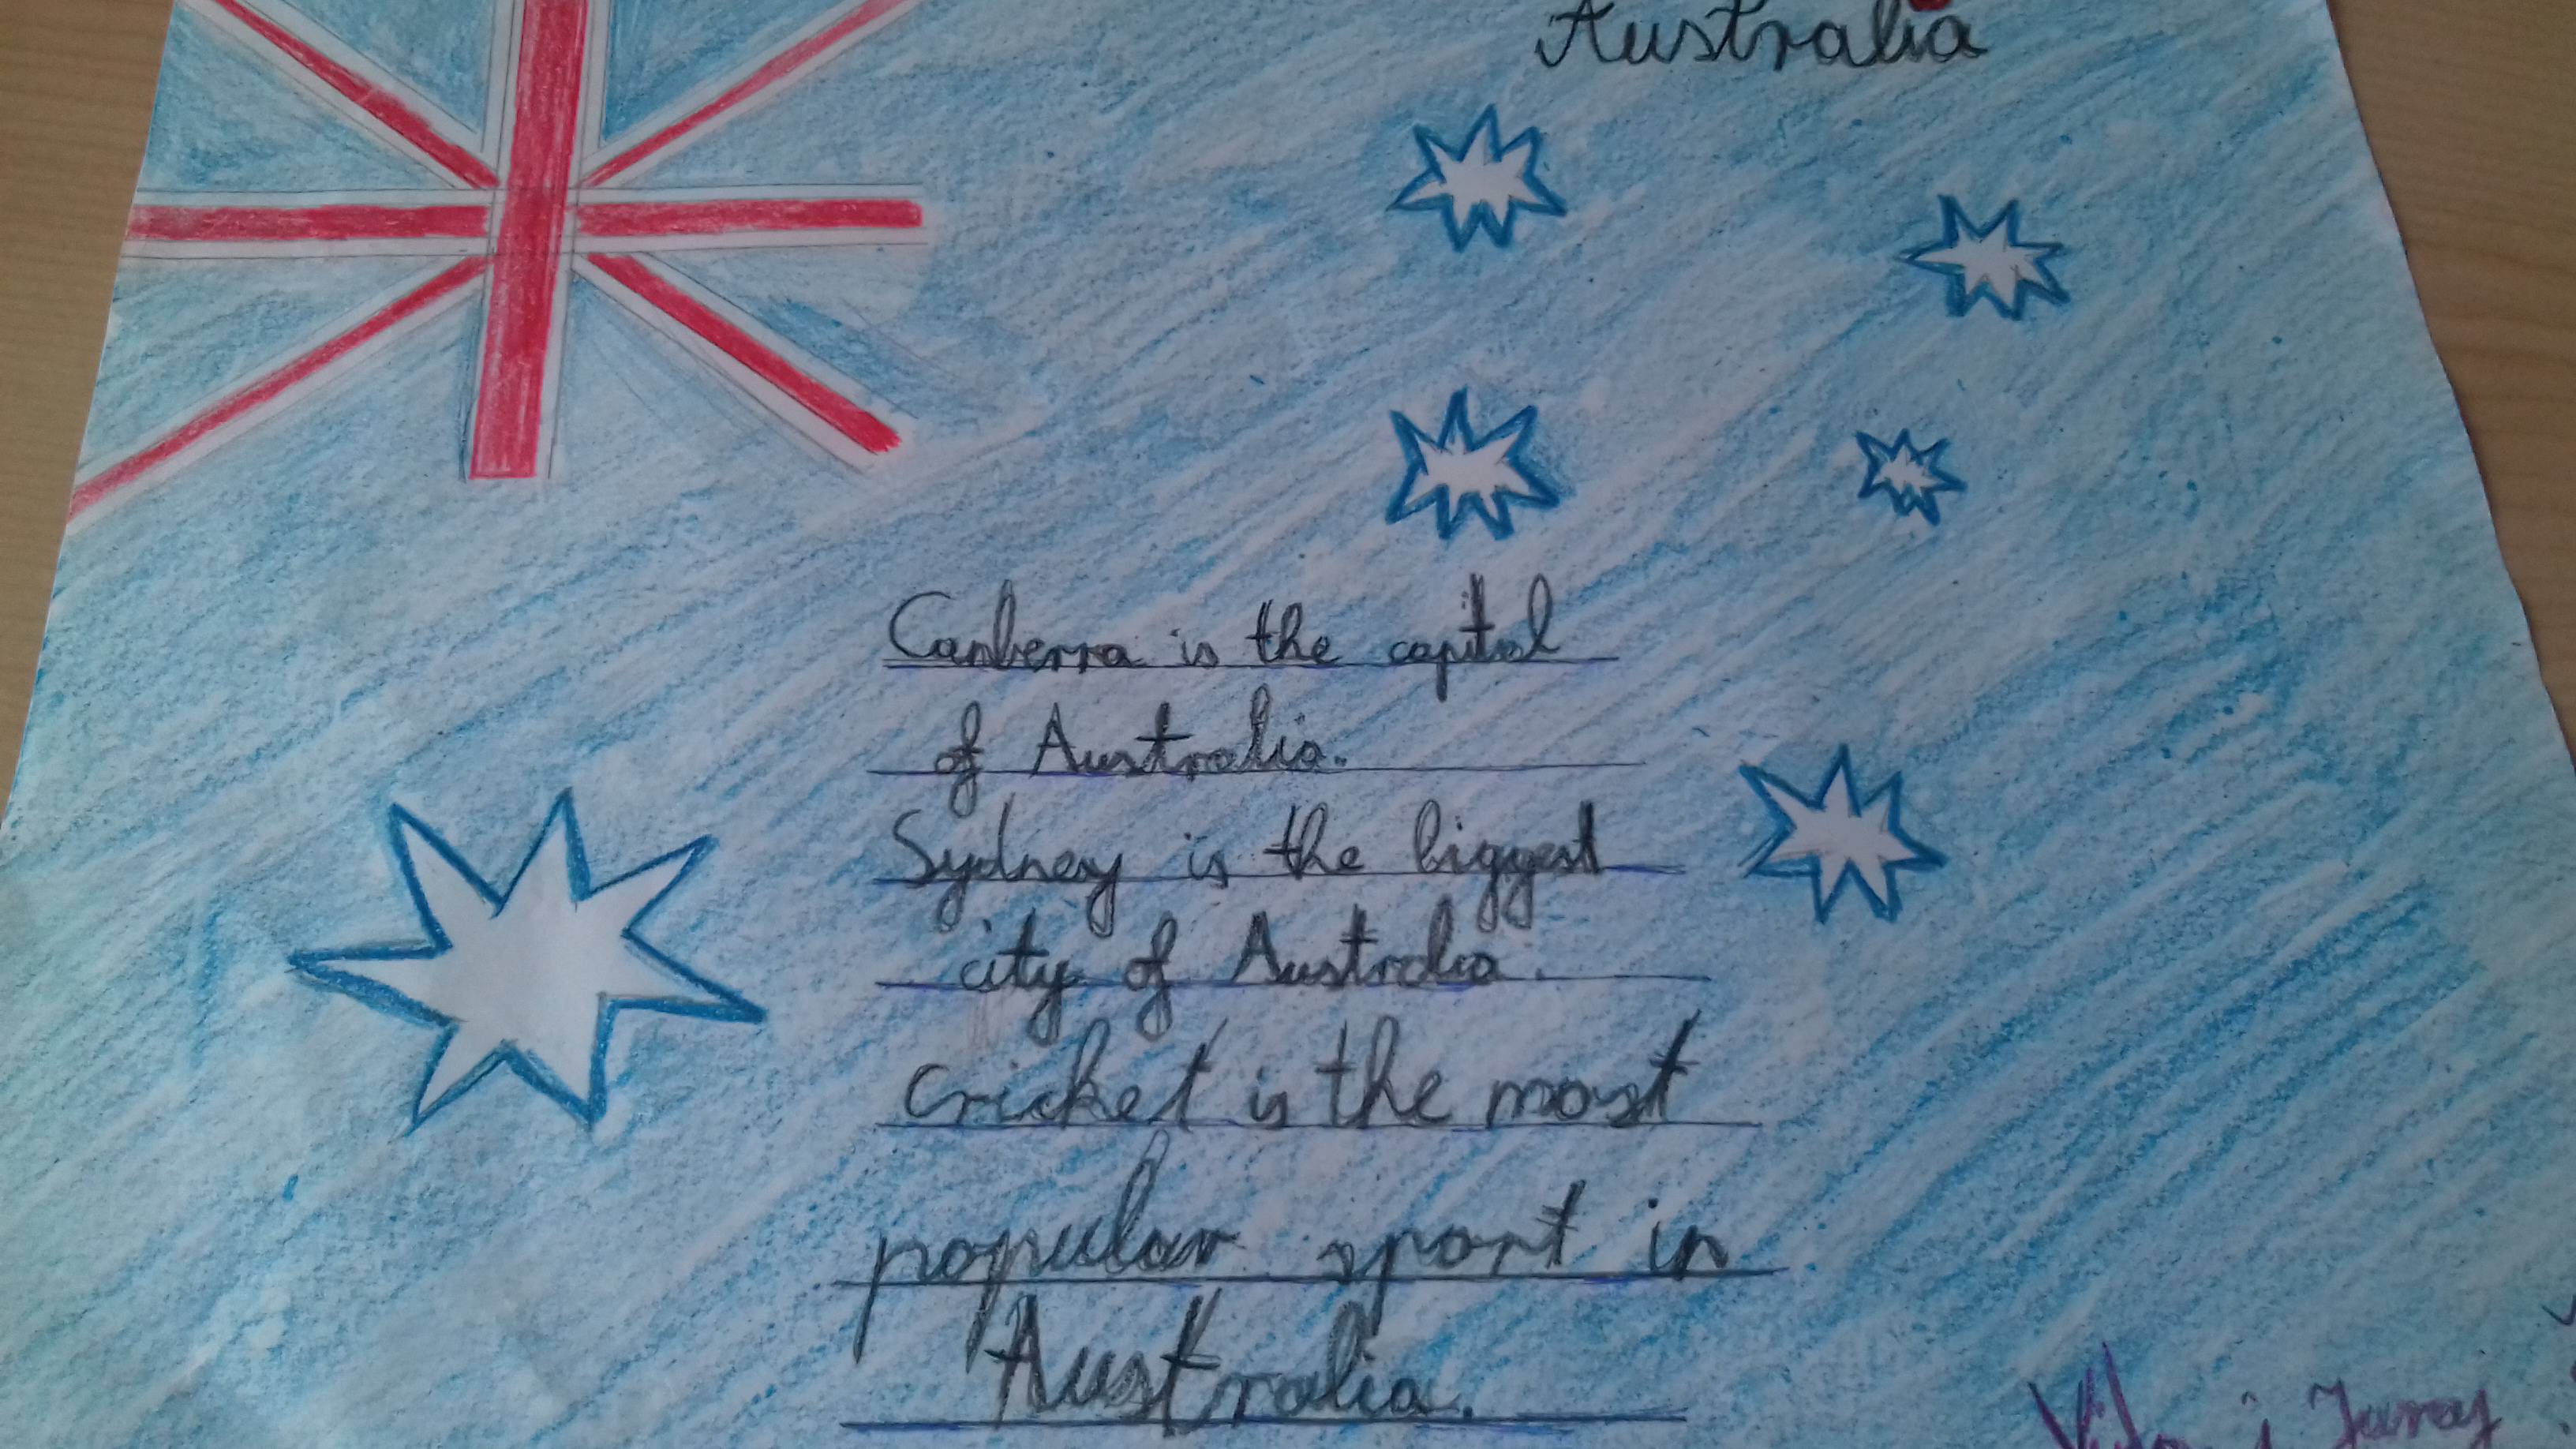 Australia
Canberra is the capital
of Australia.
Sydney is the biggest
city of Australia.
Cricket is the most
popular sport in
Australia.
i Juraj